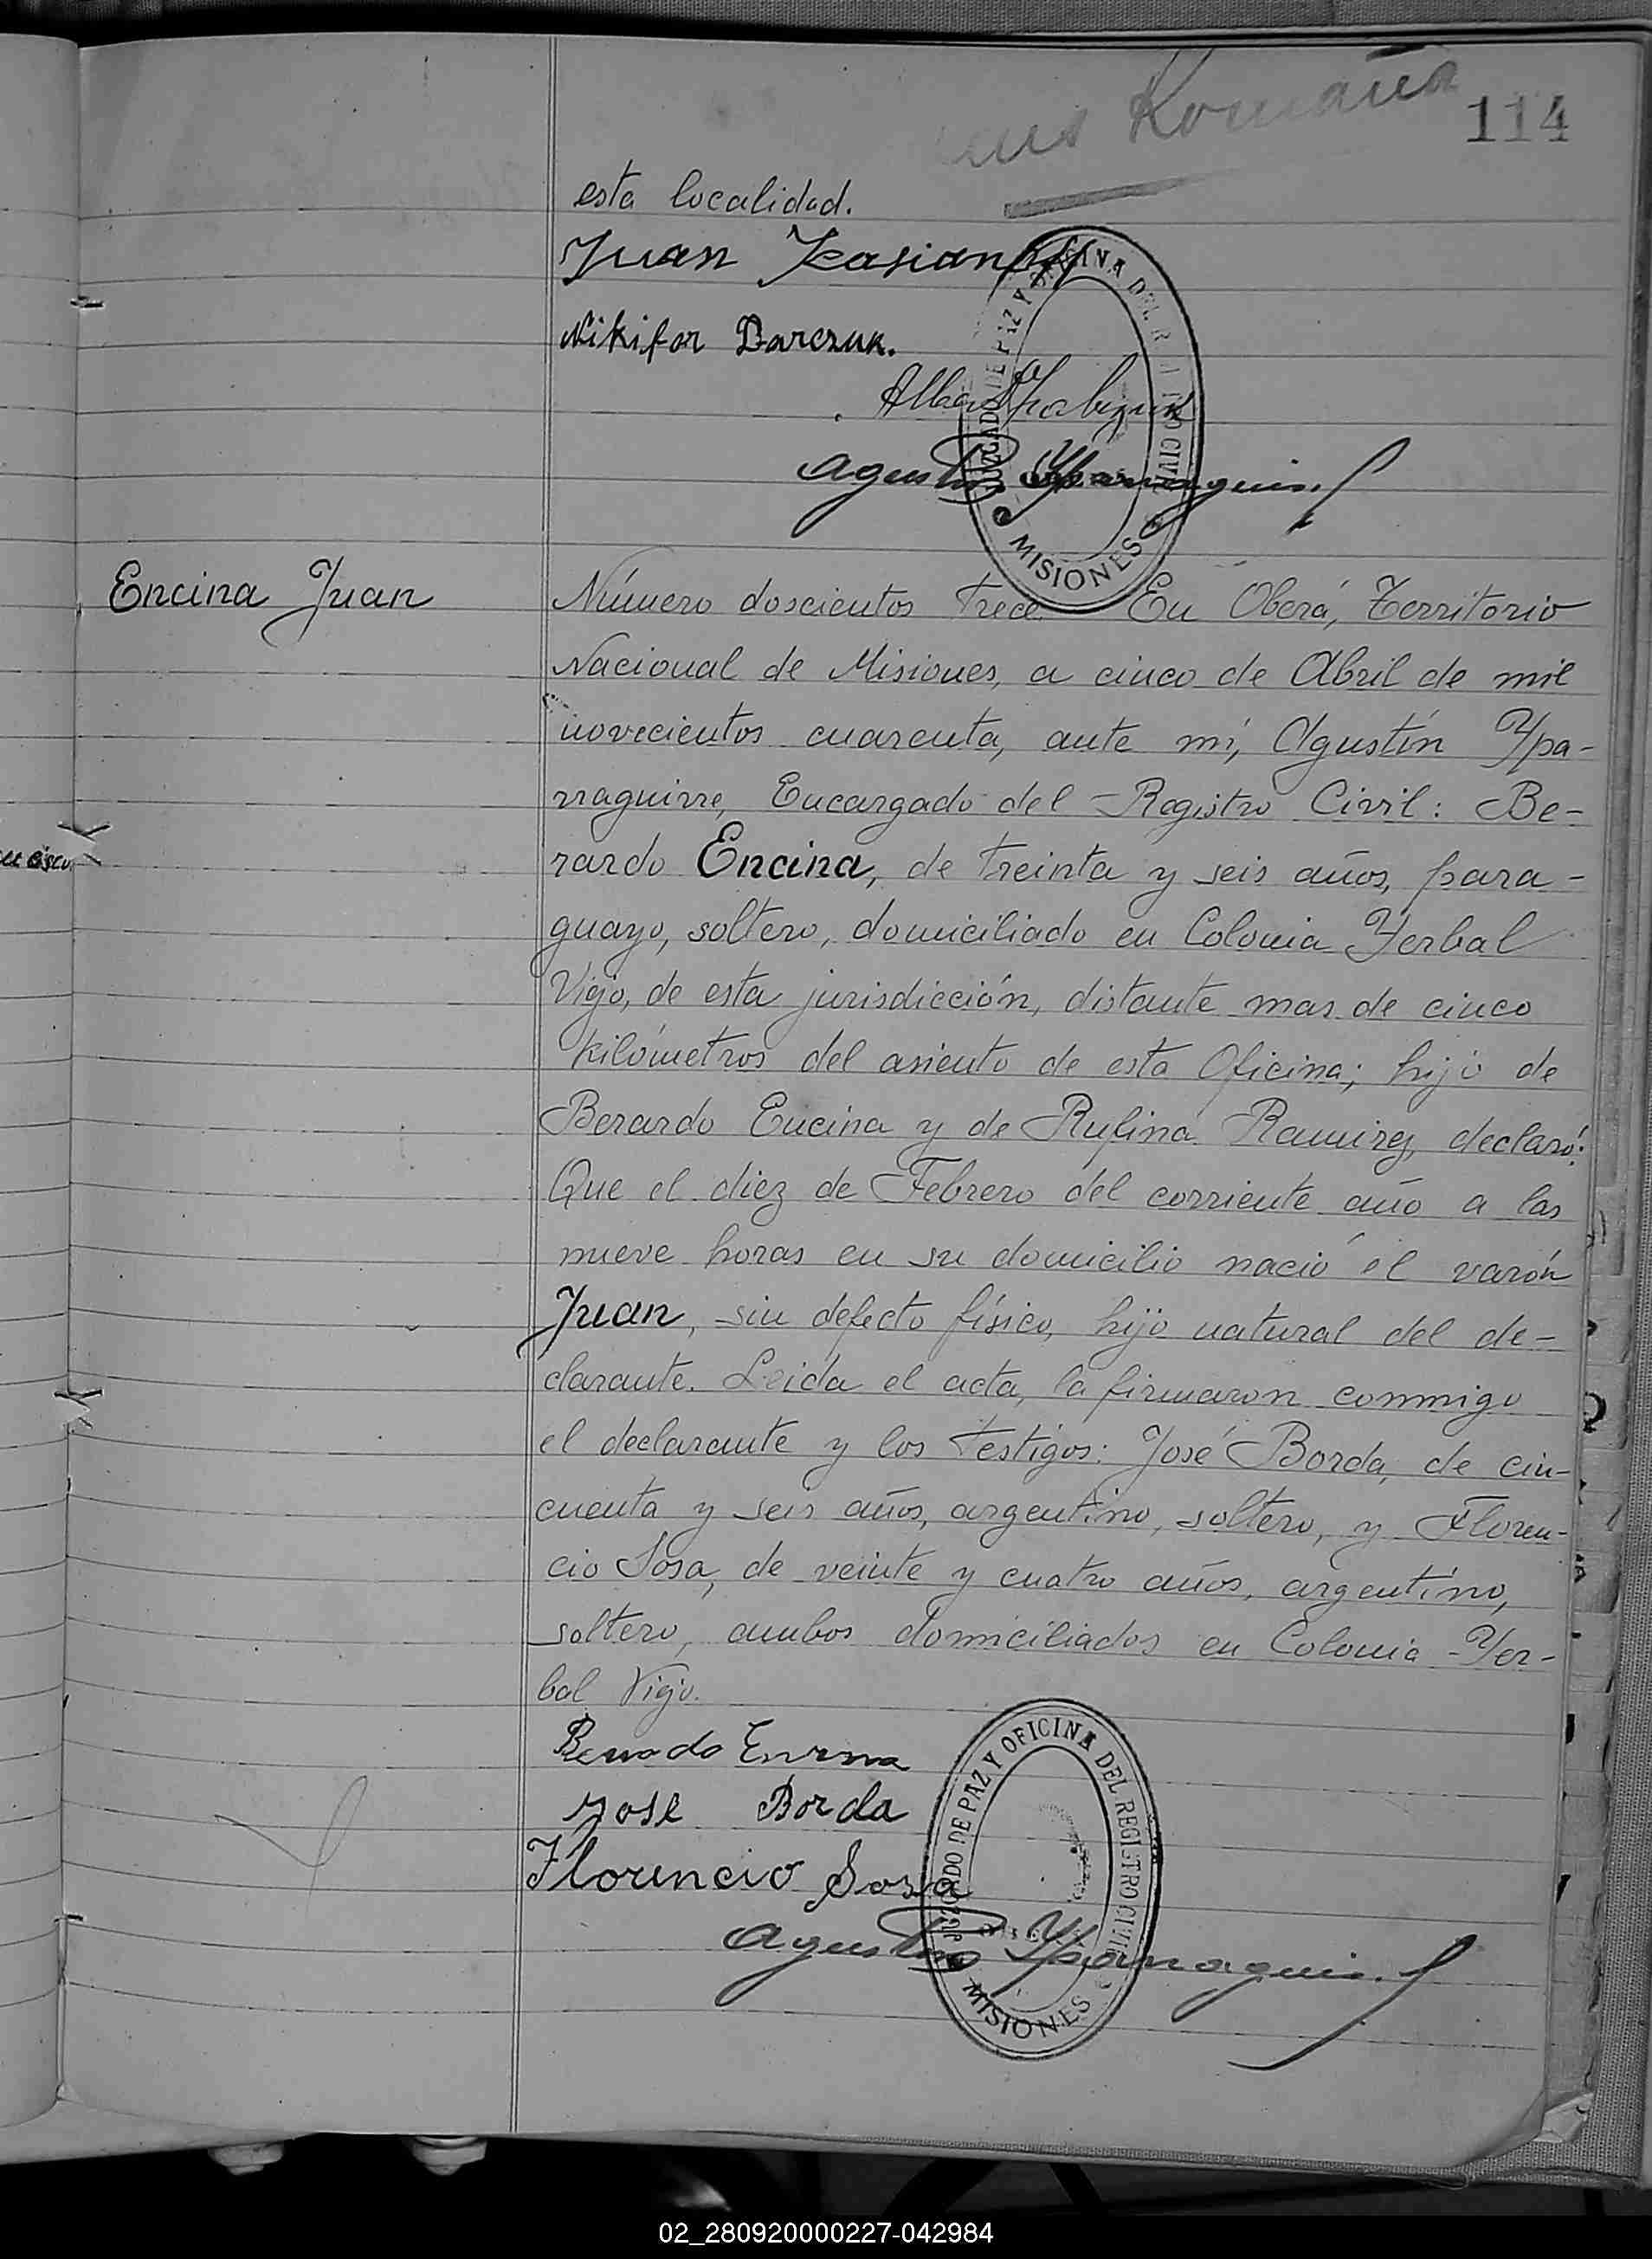 Romaña
114
esta localidad.
Juan
Nikifor Darczuk.
Agustín Yparraguirre
JUZGADO DE PAZ Y OFICINA DEL REGISTRO CIVIL
MISIONES
Encina Juan
Número doscientos trece En Oberá, Territorio
Nacional de Misiones, a cinco de Abril de mil
novecientos cuarenta, ante mí, Agustín Ypa-
rraguirre, Encargado del Registro Civil: Be-
rardo Encina, de treinta y seis años, para-
guayo, soltero, domiciliado en Colonia Yerbal
Viejo, de esta jurisdicción, distante mas de cinco
kilómetros del asiento de esta Oficina; hijo de
Berardo Encina y de Rufina Ramirez, declaró:
Que el diez de Febrero del corriente año a las
nueve horas en su domicilio nació el varón
Juan, sin defecto físico, hijo natural del de-
clarante. Leida el acta, la firmaron conmigo
el declarante y los testigos: José Borda, de cin-
cuenta y seis años, argentino, soltero, y Floren-
cio Sosa, de veinte y cuatro años, argentino,
soltero, ambos domiciliados en Colonia Yer-
bal Viejo.
José Borda
Florencio Sosa
Agustín Yparraguirre
JUZGADO DE PAZ Y OFICINA DEL REGISTRO CIVIL
MISIONES
02_280920000227-042984